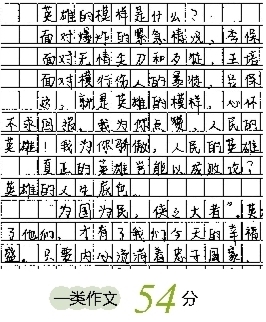 英雄的模样是什么？
面对爆炸的紧急情况，李保
面对无情尖刀和歹徒，王
面对横行伤人的暴徒，吕保
这，就是英雄的模样，心怀
不求回报。我为你点赞，人民的
英雄！我为你骄傲，人民的英雄
真正的英雄岂能以成败论？
英雄的人生底色。
“为国为民，侠之大者”。英
了他们，才有了我们今天的幸福
盛。只要内心流淌着忠于国家、
一类作文 54分